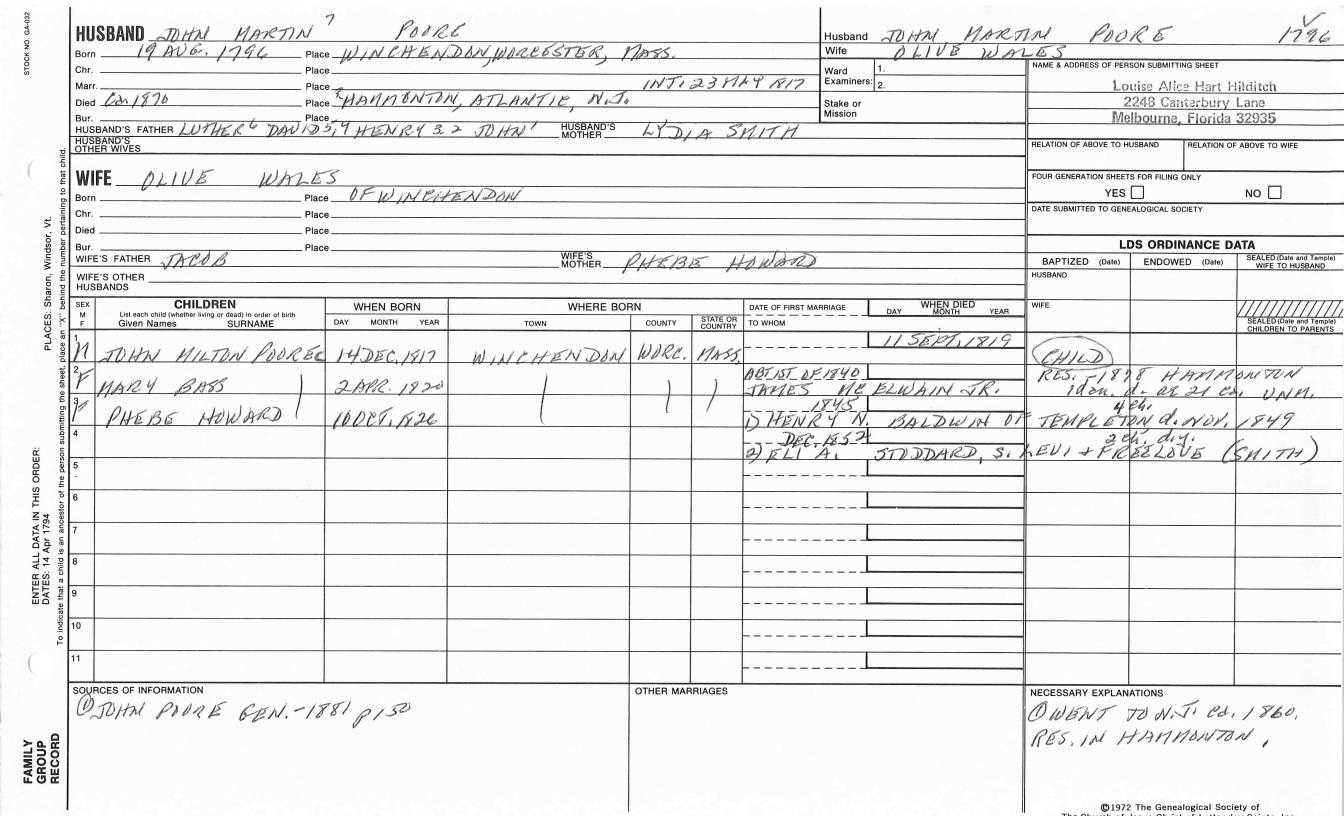 STOCK NO. GA-032
HUSBAND JOHN MARTIN 7 POORE
Born 19 AUG. 1796 Place WINCHENDON, WORCESTER, MASS.
Chr. Place
Marr. Place INT. 23 MAY 1817
Died Ca 1870 Place ? HAMMONTON, ATLANTIC, N.J.
Bur. Place
HUSBAND'S FATHER LUTHER 6 DAVID 5, 4 HENRY 3 2 JOHN 1 HUSBAND'S MOTHER LYDIA SMITH
HUSBAND'S OTHER WIVES
WIFE OLIVE WALES
Born Place OF WINCHENDON
Chr. Place
Died Place
Bur. Place
WIFE'S FATHER JACOB WIFE'S MOTHER PHEBE HOWARD
WIFE'S OTHER HUSBANDS
Husband JOHN MARTIN POORE 1796
Wife OLIVE WALES
Ward Examiners: 1.
2.
Stake or Mission
NAME & ADDRESS OF PERSON SUBMITTING SHEET
Louise Alice Hart Hilditch
2248 Canterbury Lane
Melbourne, Florida 32935
RELATION OF ABOVE TO HUSBAND RELATION OF ABOVE TO WIFE
FOUR GENERATION SHEETS FOR FILING ONLY
YES NO
DATE SUBMITTED TO GENEALOGICAL SOCIETY
LDS ORDINANCE DATA
BAPTIZED (Date) ENDOWED (Date) SEALED (Date and Temple) WIFE TO HUSBAND
HUSBAND
WIFE
SEALED (Date and Temple) CHILDREN TO PARENTS
SEX M F
CHILDREN
List each child (whether living or dead) in order of birth
Given Names SURNAME
WHEN BORN
DAY MONTH YEAR
WHERE BORN
TOWN COUNTY STATE OR COUNTRY
DATE OF FIRST MARRIAGE
TO WHOM
WHEN DIED
DAY MONTH YEAR
1 M JOHN MILTON POORE 14 DEC. 1817 WINCHENDON WORC. MASS. 11 SEPT. 1819 CHILD
2 F MARY BASS 2 APR. 1820 ABT 1ST OF 1840 RES. 1878 HAMMONTON
JAMES MC ELWAIN JR. 1 don. d. ae 21 ca. UNM.
3 F PHEBE HOWARD 10 OCT. 1826 1845 4 ch.
1) HENRY N. BALDWIN OF TEMPLETON d. NOV. 1849
4 DEC. 1852 2 ch. d.y.
2) ELI A. STODDARD, S. LEVI + FREELOVE (SMITH)
5
6
7
8
9
10
11
SOURCES OF INFORMATION
① JOHN POORE GEN. - 1881 p 150
OTHER MARRIAGES
NECESSARY EXPLANATIONS
① WENT TO N.J. Ca. 1860.
RES. IN HAMMONTON,
©1972 The Genealogical Society of
ENTER ALL DATA IN THIS ORDER:
DATES: 14 Apr 1794
PLACES: Sharon, Windsor, Vt.
To indicate that a child is an ancestor of the person submitting the sheet, place an "X" behind the number pertaining to that child.
FAMILY GROUP RECORD